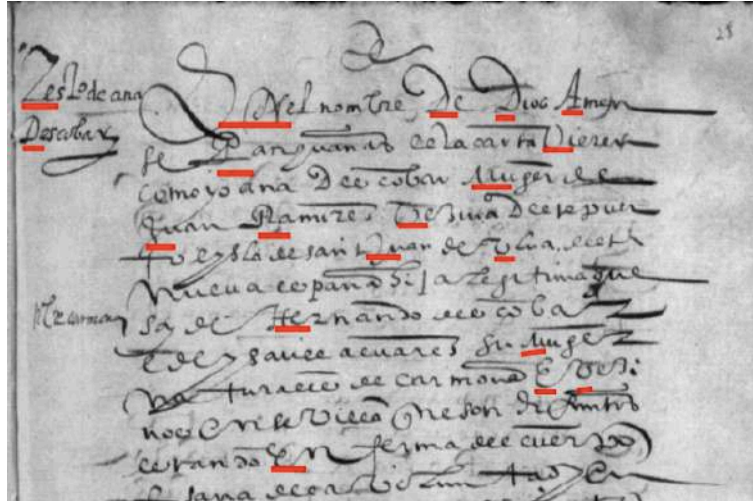 28
Tesţo de ana
Descobar
En el nombre De Dios Amen
se Pan quantos esta carta Vieren
como yo ana De escobar Muger de
Juan Ramires Vezina Deste puer
to e ysla de sant Juan de Ulua desta
nueva españa hija legitima que
soy de Hernando de escobar
e de ysavel alvares su Muger
naturales de carmona E Vezi
nos en sevilla
estando En ferma del cuerpo
e sana de la voluntad en